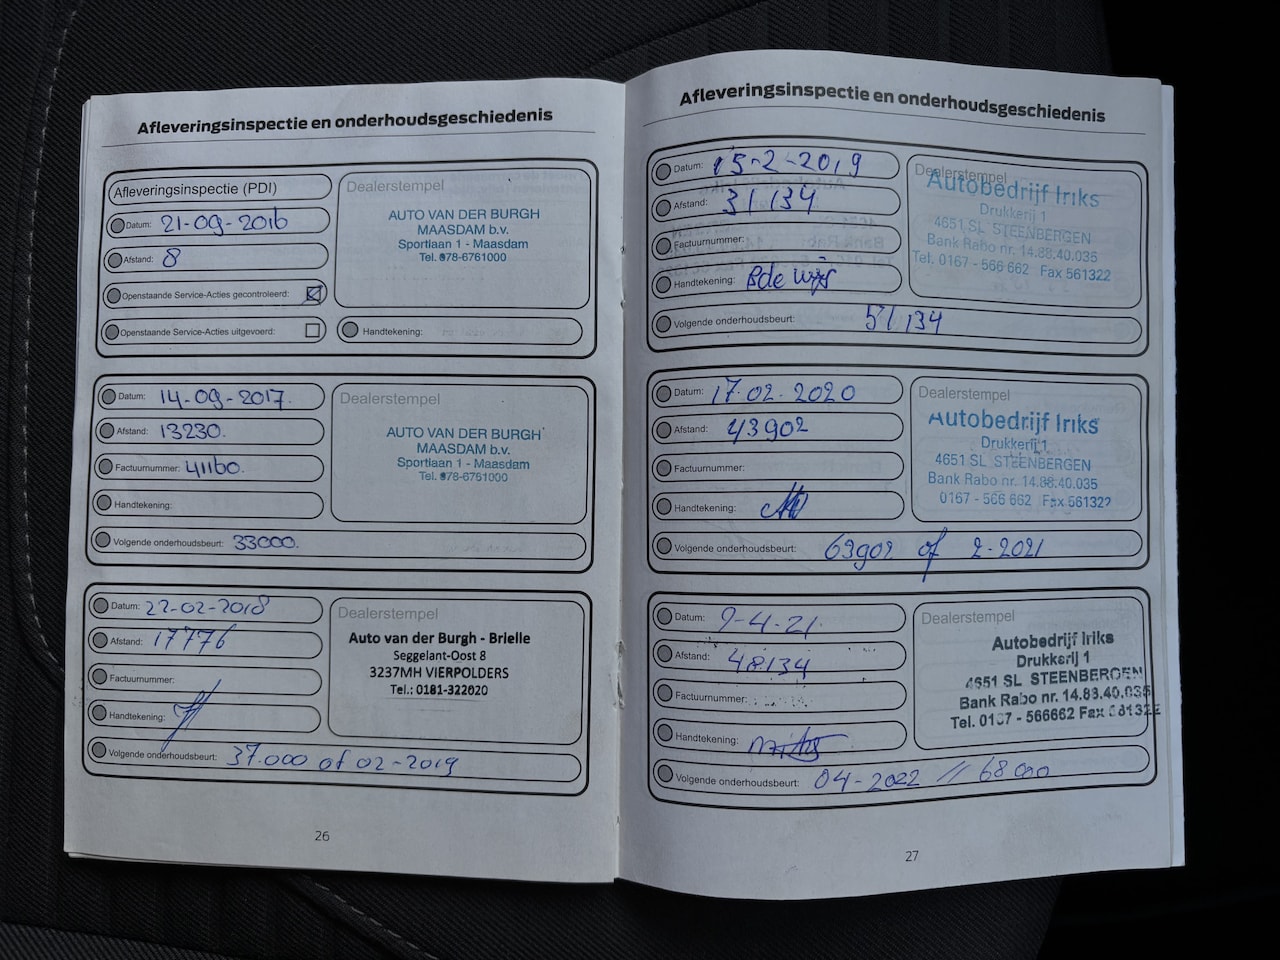 Afleveringsinspectie en onderhoudsgeschiedenis
Afleveringsinspectie (PDI)
Datum: 21-09-2016
Afstand: 8
Openstaande Service-Acties gecontroleerd:
Openstaande Service-Acties uitgevoerd:
Dealerstempel
AUTO VAN DER BURGH
MAASDAM b.v.
Sportlaan 1 - Maasdam
Tel. 078-6761000
Handtekening:
Datum: 14-09-2017.
Afstand: 13230.
Factuurnummer: 41160.
Handtekening:
Dealerstempel
AUTO VAN DER BURGH
MAASDAM b.v.
Sportlaan 1 - Maasdam
Tel. 078-6761000
Volgende onderhoudsbeurt: 33000.
Datum: 22-02-2018
Afstand: 17776
Factuurnummer:
Handtekening:
Dealerstempel
Auto van der Burgh - Brielle
Seggelant-Oost 8
3237MH VIERPOLDERS
Tel.: 0181-322020
Volgende onderhoudsbeurt: 37.000 of 02-2019
26
Afleveringsinspectie en onderhoudsgeschiedenis
Datum: 15-2-2019
Afstand: 31134
Factuurnummer:
Handtekening:
Dealerstempel
Autobedrijf Iriks
Drukkerij 1
4651 SL STEENBERGEN
Bank Rabo nr. 14.88.40.035
Tel. 0167 - 566 662 Fax 561322
Volgende onderhoudsbeurt: 51134
Datum: 17.02.2020
Afstand: 43902
Factuurnummer:
Handtekening:
Dealerstempel
Autobedrijf Iriks
Drukkerij 1
4651 SL STEENBERGEN
Bank Rabo nr. 14.88.40.035
0167 - 566 662 Fax 561322
Volgende onderhoudsbeurt: 63902 of 2-2021
Datum: 9-4-21.
Afstand: 48134
Factuurnummer:
Handtekening:
Dealerstempel
Autobedrijf Iriks
Drukkerij 1
4651 SL STEENBERGEN
Bank Rabo nr. 14.88.40.035
Tel. 0167 - 566662 Fax 561322
Volgende onderhoudsbeurt: 04-2022 // 68000
27